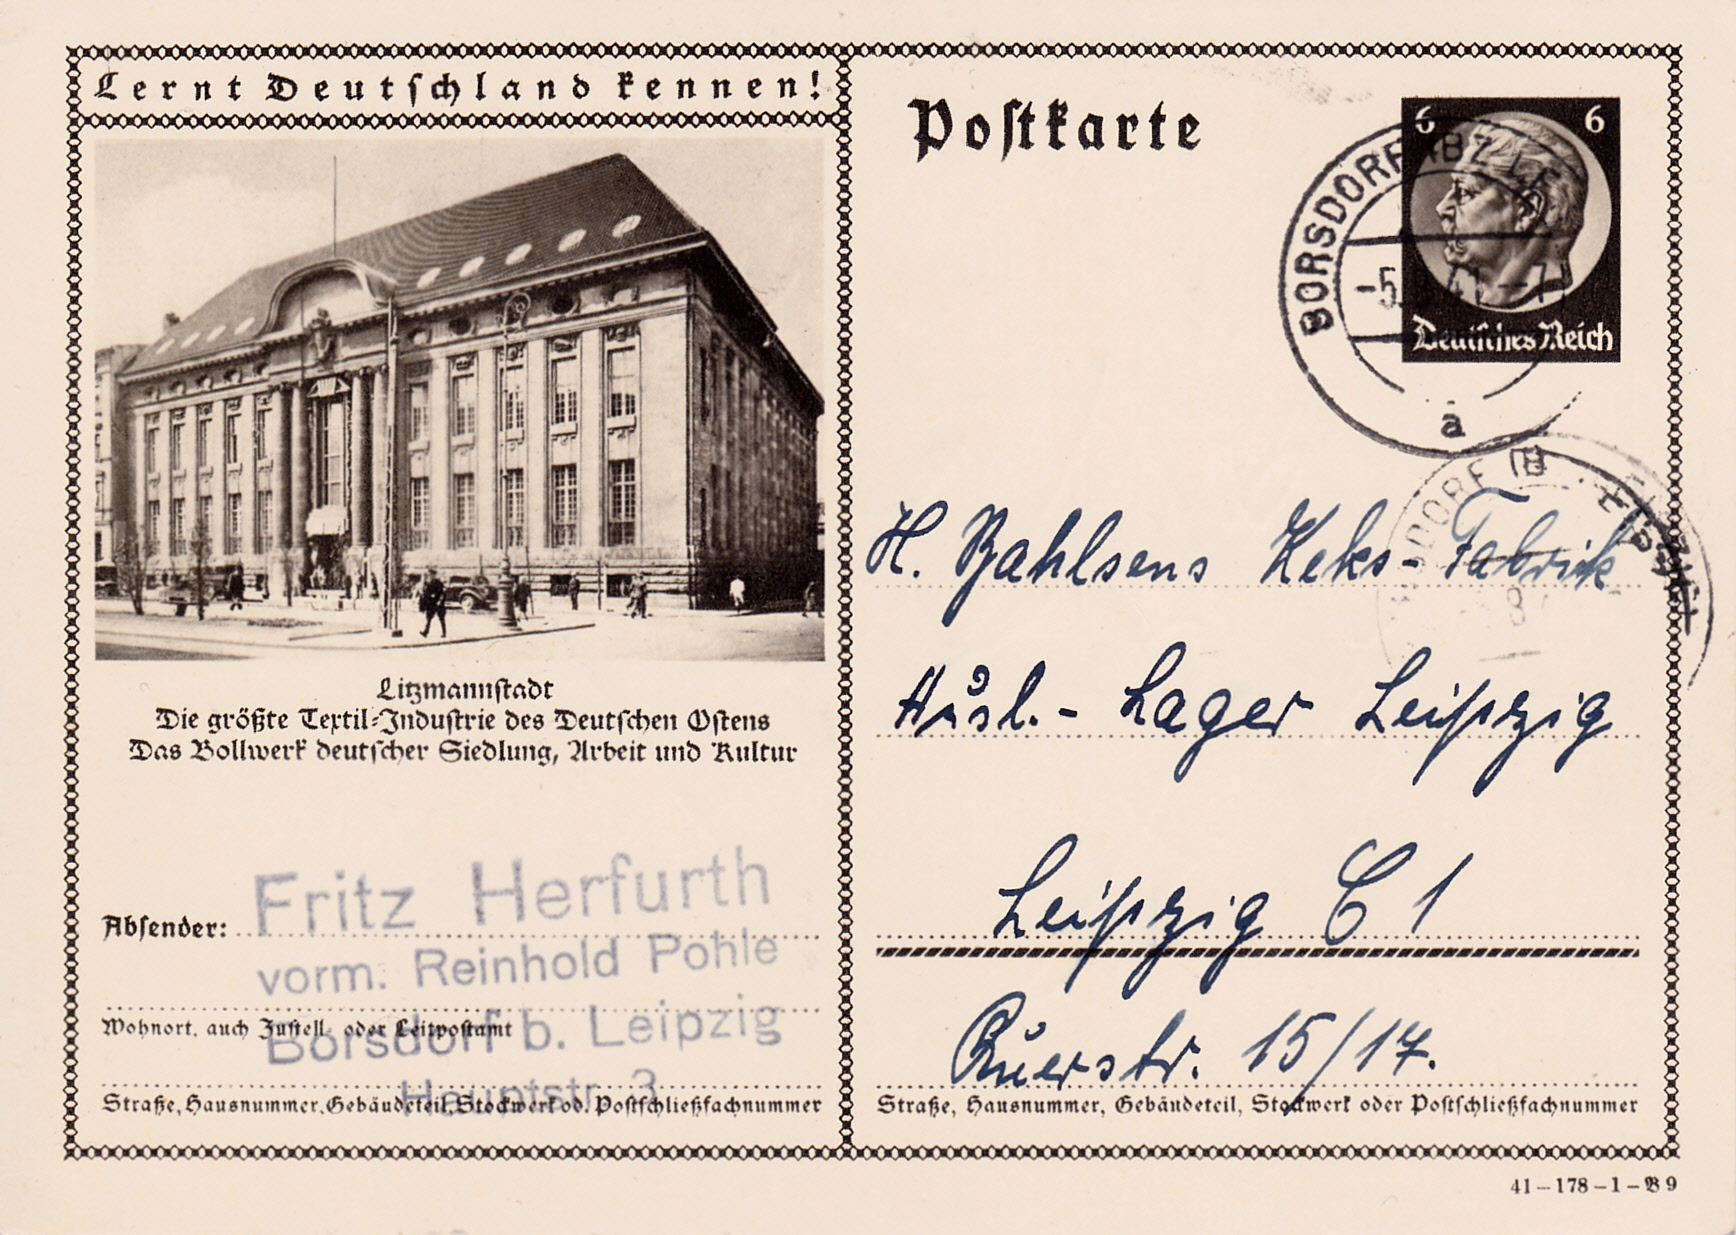 Lernt Deutschland kennen!
Litzmannstadt
Die größte Textil-Industrie des Deutschen Ostens
Das Bollwerk deutscher Siedlung, Arbeit und Kultur
Absender:
Fritz Herfurth
vorm. Reinhold Pohle
Wohnort, auch Zustell- oder Leitpostamt
Borsdorf b. Leipzig
Hauptstr. 3
Straße, Hausnummer, Gebäudeteil, Stockwerk od. Postschließfachnummer
Postkarte
6 6
Deutsches Reich
BORSDORF (BZ LE
-5. 41.-7
a
H. Bahlsens Keks-Fabrik
Ausl.- Lager Leipzig
Leipzig C 1
straße, Hausnummer, Gebäudeteil, Stockwerk oder Postschließfachnummer
41-178-1-B9